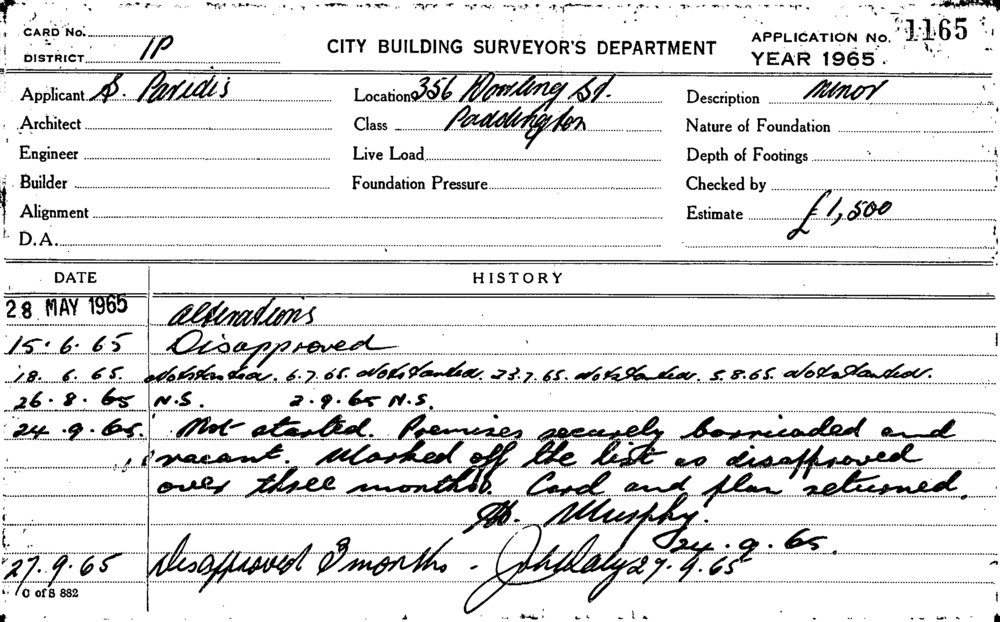 CARD No.
DISTRICT 1P
CITY BUILDING SURVEYOR'S DEPARTMENT
APPLICATION No. 1165
YEAR 1965.
Applicant S. Paridis
Location 356 Dowling St.
Description Minor
Architect
Class Paddington
Nature of Foundation
Engineer
Live Load
Depth of Footings
Builder
Foundation Pressure
Checked by
Alignment
Estimate £1,500
D.A.
DATE HISTORY
28 MAY 1965 Alterations
15.6.65 Disapproved
18.6.65. Not started. 6.7.65. Not started. 23.7.65. Not started. 5.8.65. Not started.
26.8.65 N.S. 2.9.65 N.S.
24.9.65. Not started. Premises securely barricaded and
vacant. Marked off the list as disapproved
over three months. Card and plan returned.
Murphy.
24.9.65.
27.9.65 Disapproved 3 months - John Daly 27.9.65
C of S 882